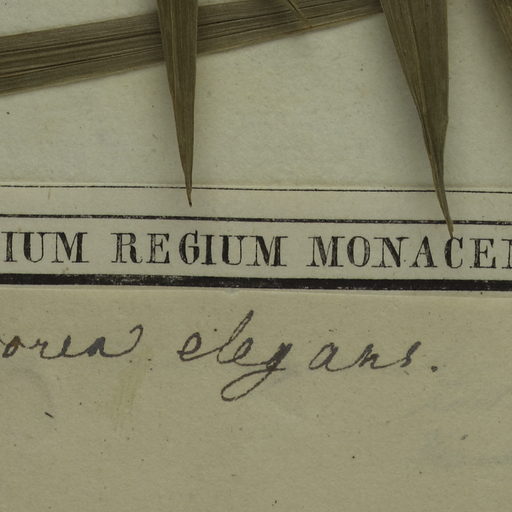 IUM REGIUM MONACEN
orea elegans.